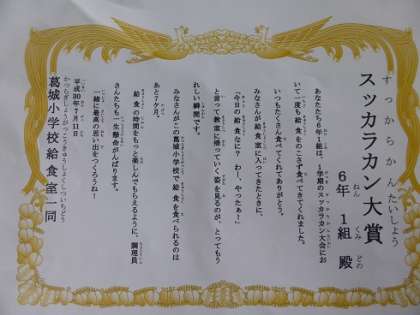 すっからかんたいしょう
スッカラカン大賞
６年 １組 殿
あなたたち６年１組は、１学期のスッカラカン大会にお
いて一度も給食をのこさず食べてきてくれました。
いつもたくさん食べてくれてありがとう。
みなさんが給食室に入ってきたときに、
「今日の給食なに？ わー、やったぁー」
と言って教室に帰っていく姿を見るのが、とってもう
れしい瞬間です。
みなさんがこの葛城小学校で給食を食べられるのは
あと７ケ月。
給食の時間をもっと楽しんでもらえるように、調理員
さんたちも一生懸命がんばります。
一緒に最高の思い出をつくろうね！
平成３０年７月１１日
葛城小学校給食室一同